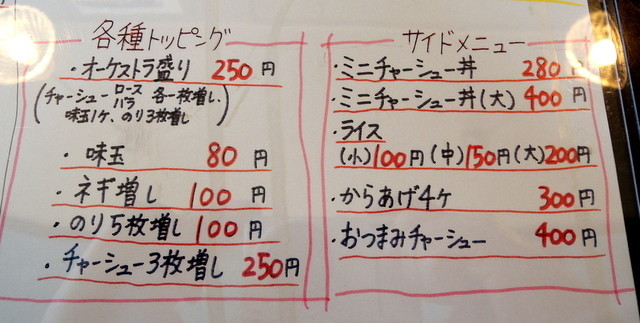 各種トッピング
・オーケストラ盛り 250円
(チャーシュー ロース バラ 各一枚増し、
味玉1ケ、のり3枚増し)
・味玉 80円
・ネギ増し 100円
・のり5枚増し 100円
・チャーシュー3枚増し 250円
サイドメニュー
・ミニチャーシュー丼 280円
・ミニチャーシュー丼(大) 400円
・ライス
(小)100円(中)150円(大)200円
・からあげ4ケ 300円
・おつまみチャーシュー 400円